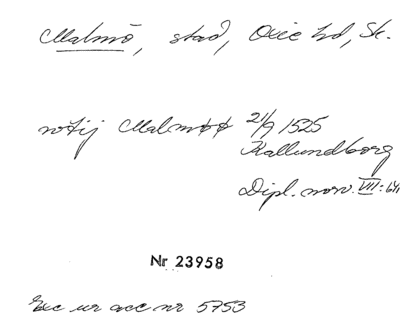 Malmö, stad, Oxie hd, Sk.
wtij Malmøø 21/9 1525
Kallundborg
Dipl. norv. VIII:
Nr 23958
Exc ur acc nr 5753